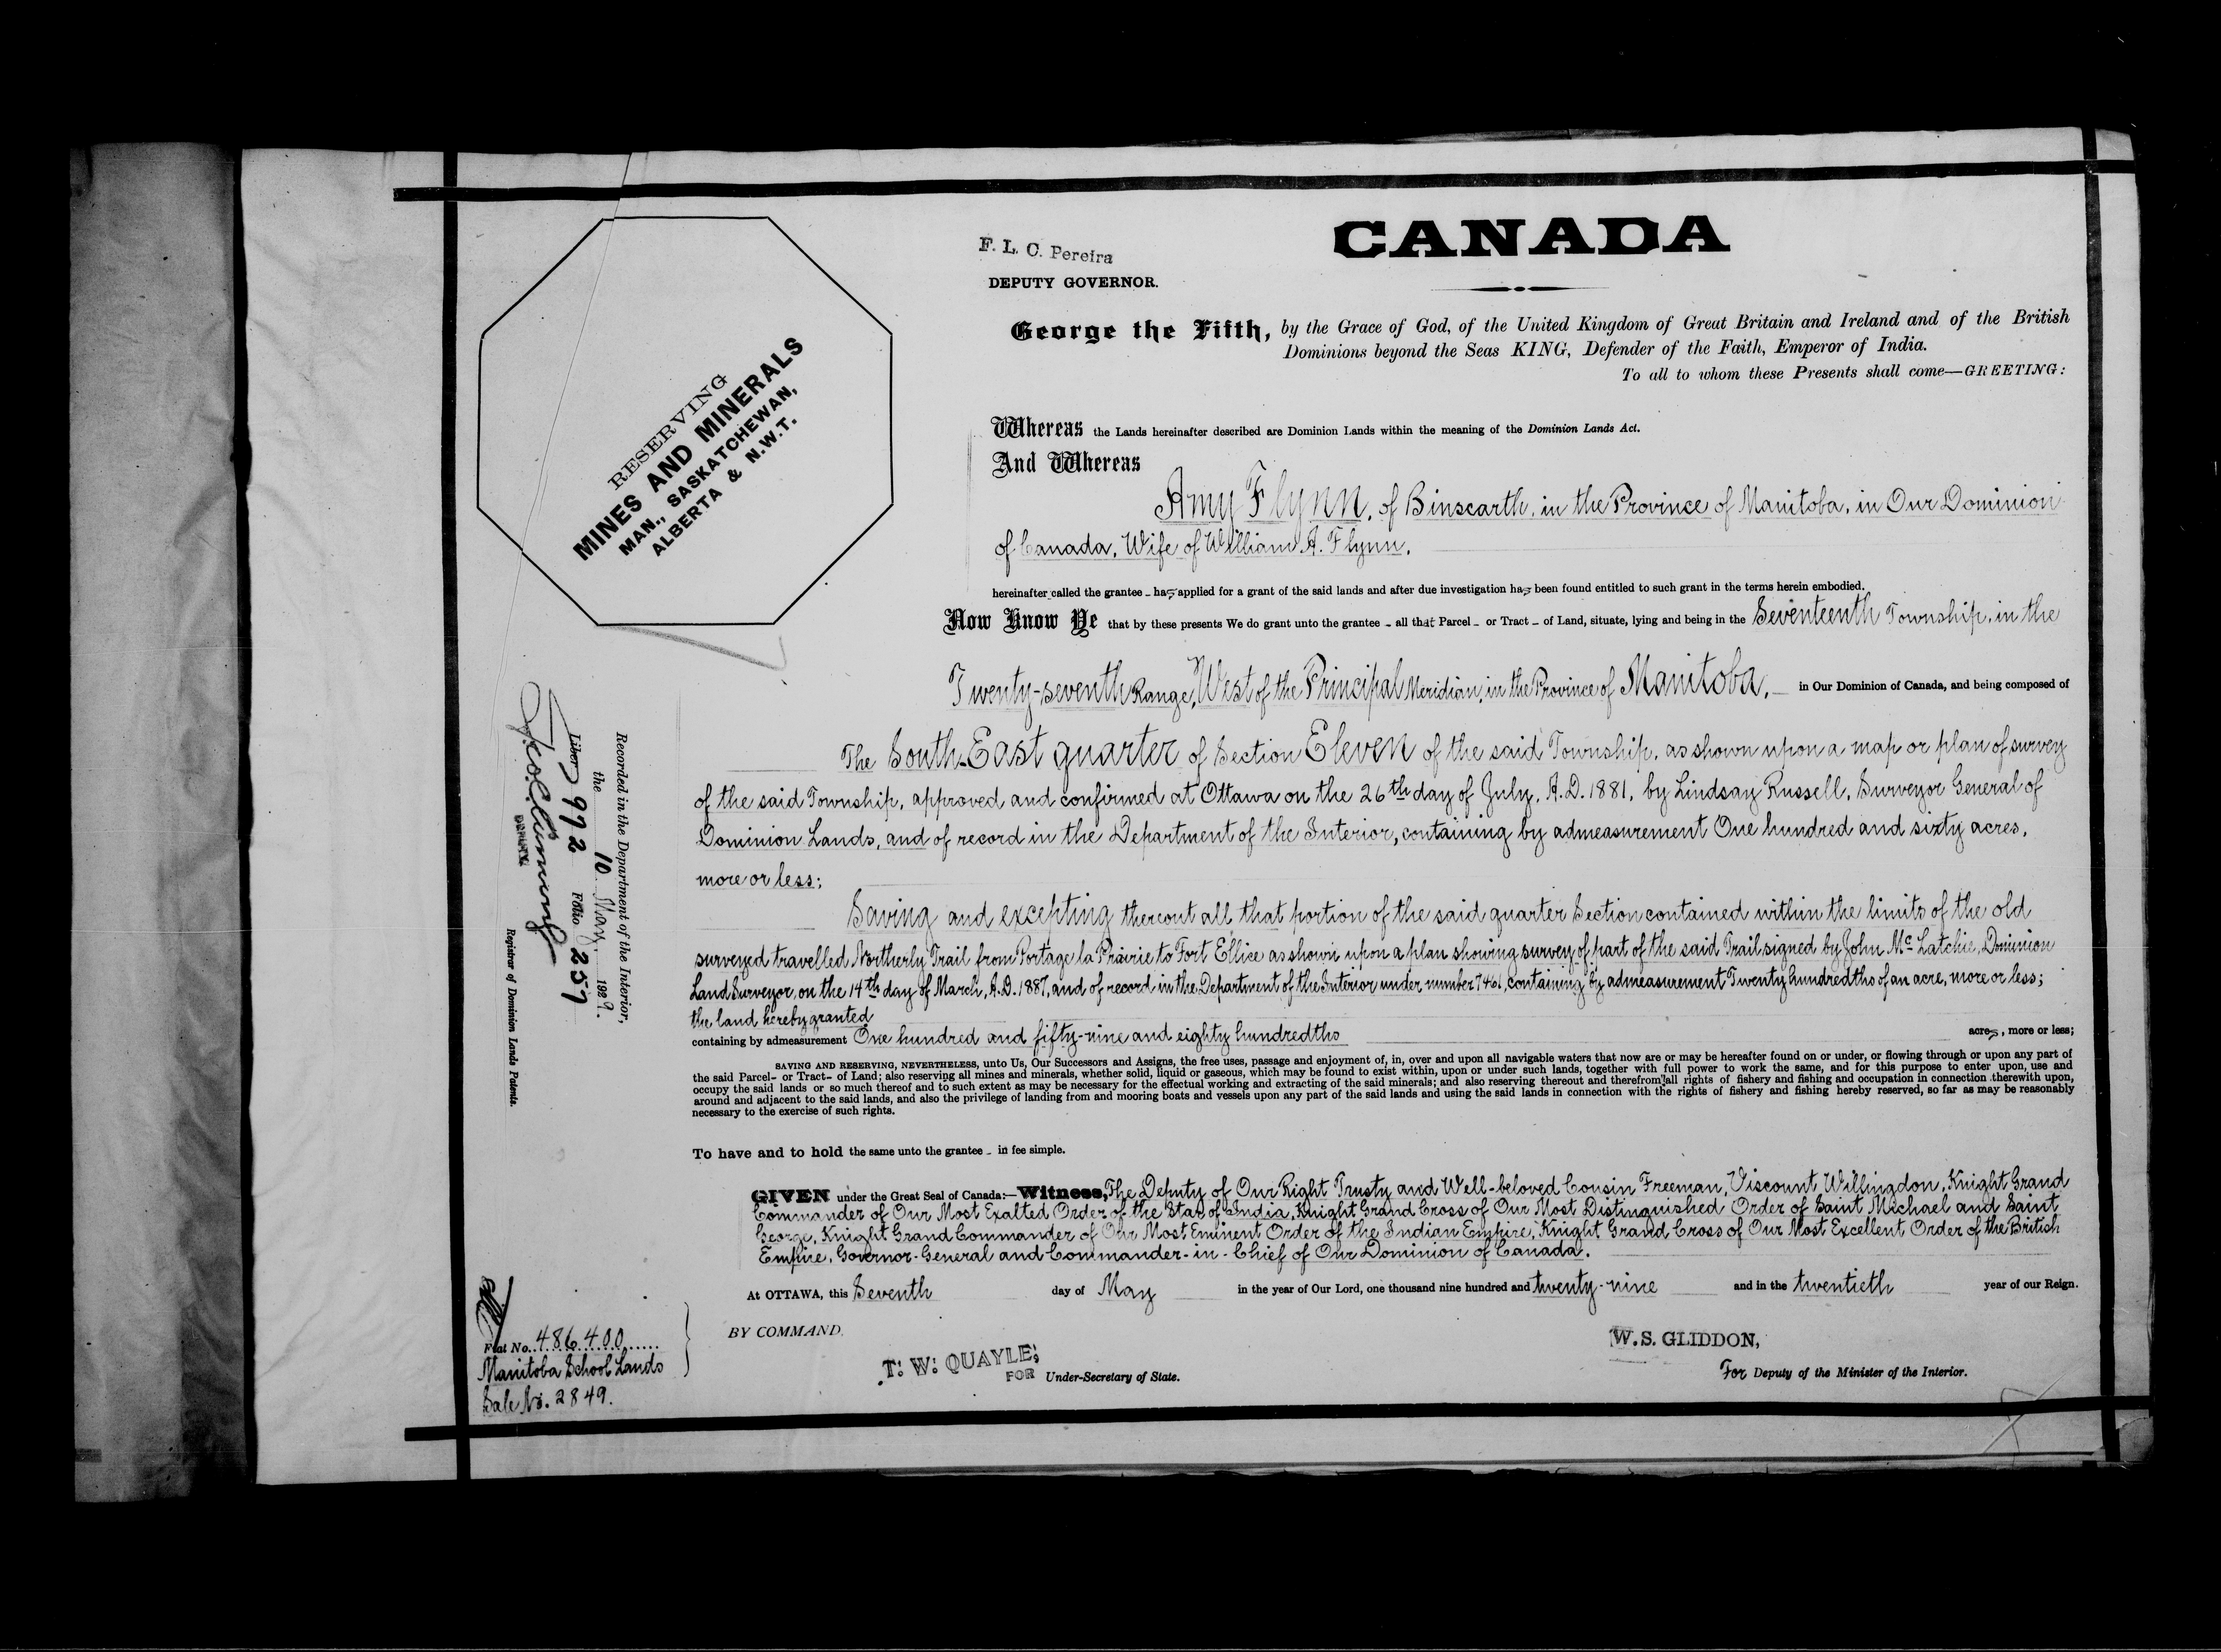 CANADA
F. L. C. Pereira
DEPUTY GOVERNOR.
George the Fifth, by the Grace of God, of the United Kingdom of Great Britain and Ireland and of the British
Dominions beyond the Seas KING, Defender of the Faith, Emperor of India.
To all to whom these Presents shall come—GREETING:
RESERVING
MINES AND MINERALS
MAN., SASKATCHEWAN,
ALBERTA & N.W.T.
Whereas the Lands hereinafter described are Dominion Lands within the meaning of the Dominion Lands Act.
And Whereas
Amy Flynn, of Binscarth, in the Province of Manitoba, in Our Dominion
of Canada, Wife of William A. Flynn,
hereinafter called the grantee - has applied for a grant of the said lands and after due investigation has been found entitled to such grant in the terms herein embodied.
Now Know Ye that by these presents We do grant unto the grantee - all that Parcel - or Tract - of Land, situate, lying and being in the Seventeenth Township, in the
Twenty-seventh Range, West of the Principal Meridian, in the Province of Manitoba, - in Our Dominion of Canada, and being composed of
The South-East quarter of Section Eleven of the said Township, as shown upon a map or plan of survey
of the said Township, approved and confirmed at Ottawa on the 26th day of July, A.D. 1881, by Lindsay Russell, Surveyor General of
Dominion Lands, and of record in the Department of the Interior, containing by admeasurement One hundred and sixty acres,
more or less;
Saving and excepting thereout all that portion of the said quarter Section contained within the limits of the old
surveyed travelled Northerly Trail from Portage la Prairie to Fort Ellice as shown upon a plan showing survey of part of the said Trail signed by John Mc Latchie, Dominion
Land Surveyor, on the 14th day of March, A.D. 1887, and of record in the Department of the Interior under number 7461, containing by admeasurement Twenty hundredths of an acre, more or less;
the land hereby granted
containing by admeasurement One hundred and fifty-nine and eighty hundredths acres, more or less;
SAVING AND RESERVING, NEVERTHELESS, unto Us, Our Successors and Assigns, the free uses, passage and enjoyment of, in, over and upon all navigable waters that now are or may be hereafter found on or under, or flowing through or upon any part of
the said Parcel- or Tract- of Land; also reserving all mines and minerals, whether solid, liquid or gaseous, which may be found to exist within, upon or under such lands, together with full power to work the same, and for this purpose to enter upon, use and
occupy the said lands or so much thereof and to such extent as may be necessary for the effectual working and extracting of the said minerals; and also reserving thereout and therefrom all rights of fishery and fishing and occupation in connection therewith upon,
around and adjacent to the said lands, and also the privilege of landing from and mooring boats and vessels upon any part of the said lands and using the said lands in connection with the rights of fishery and fishing hereby reserved, so far as may be reasonably
necessary to the exercise of such rights.
To have and to hold the same unto the grantee - in fee simple.
GIVEN under the Great Seal of Canada:—Witness, The Deputy of Our Right Trusty and Well-beloved Cousin Freeman, Viscount Willingdon, Knight Grand
Commander of Our Most Exalted Order of the Star of India, Knight Grand Cross of Our Most Distinguished Order of Saint Michael and Saint
George, Knight Grand Commander of Our Most Eminent Order of the Indian Empire, Knight Grand Cross of Our Most Excellent Order of the British
Empire, Governor-General and Commander-in-Chief of Our Dominion of Canada.
At OTTAWA, this Seventh day of May in the year of Our Lord, one thousand nine hundred and twenty-nine and in the twentieth year of our Reign.
BY COMMAND,
T. W. QUAYLE,
FOR Under-Secretary of State.
W.S. GLIDDON,
For Deputy of the Minister of the Interior.
Recorded in the Department of the Interior,
the 10 May, 1929.
Liber 992 Folio 257
DEPUTY
Registrar of Dominion Lands Patents.
Fiat No. 486400
Manitoba School Lands
Sale No. 2849.